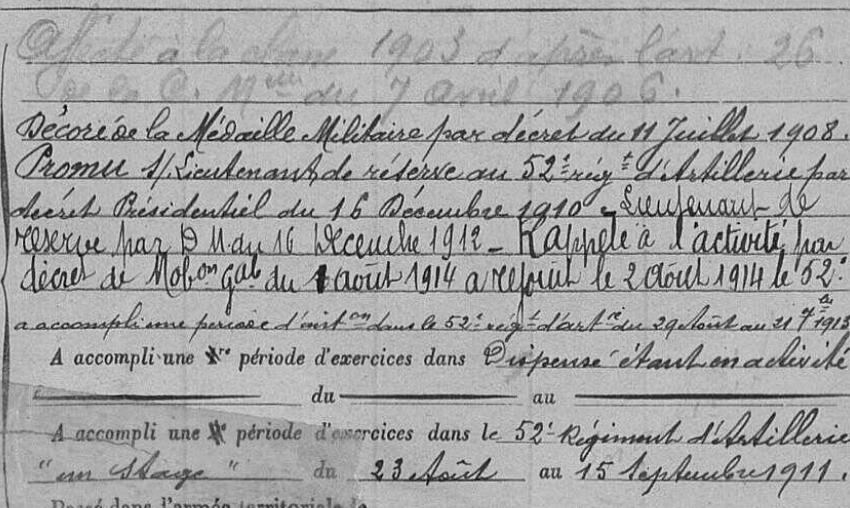 Affecté à la classe 1903 d'après l'art. 26
de la C. Melle du 7 avril 1906.
Décoré de la Médaille Militaire par décret du 11 Juillet 1908.
Promu s/Lieutenant de réserve au 52e régt d'Artillerie par
décret Présidentiel du 16 Décembre 1910 - Lieutenant de
réserve par D.M. du 16 Décembre 1912 - Rappelé à l'activité par
décret de Mobon Gale du 1 août 1914 a rejoint le 2 août 1914 le 52e
a accompli une période d'inston dans le 52e régt d'artie du 29 Août au 21 7bre 1913
A accompli une 1re période d'exercices dans Dispensé étant en activité
du au
A accompli une 2e période d'exercices dans le 52e Régiment d'Artillerie
"un stage" du 23 Août au 15 Septembre 1911.
Passé dans l'armée territoriale le